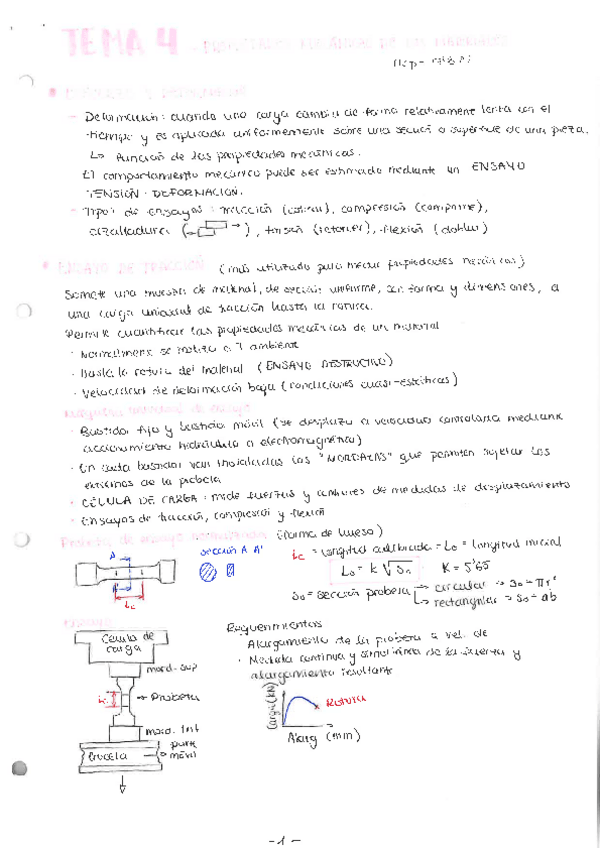 TEMA 4 - PROPIEDADES MECÁNICAS DE LOS MATERIALES
- Deformación: cuando una carga cambia de forma relativamente lenta con el
tiempo y es aplicada uniformemente sobre una sección o superficie de una pieza.
↳ función de las propiedades mecánicas.
El comportamiento mecánico puede ser estimado mediante un ENSAYO
TENSIÓN - DEFORMACIÓN.
- Tipos de ensayos: tracción (estirar), compresión (comprime),
cizalladura ( ), torsión (retorcer), flexión (doblar)
ENSAYO DE TRACCIÓN (más utilizado para medir propiedades mecánicas)
Somete una muestra de material, de sección uniforme, forma y dimensiones, a
una carga uniaxial de tracción hasta la rotura.
Permite cuantificar las propiedades mecánicas de un material
· Normalmente se realiza a T ambiente
· Hasta la rotura del material (ENSAYO DESTRUCTIVO)
· Velocidad de deformación baja (condiciones cuasi-estáticas)
· Bastidor fijo y bastidor móvil (se desplaza a velocidad controlada mediante
accionamiento hidráulico o electromagnético)
· En cada bastidor van instaladas las "MORDAZAS" que permiten sujetar los
extremos de la probeta
· CÉLULA DE CARGA: mide fuerzas y de medidas de desplazamiento
· Ensayos de tracción, compresión y flexión
Probeta de ensayo normalizada (forma de hueso)
A
A'
Lc
sección A A'
Lc = longitud calibrada = Lo = longitud inicial
Lo = k √So K = 5'65
So = sección probeta → circular → So = πr²
↳ rectangular → So = ab
Célula de
carga
mord. sup
Probeta
mord. Inf
parte
móvil
Cruceta
Requerimientos
Alargamiento de la probeta a vel. de
· Medida continua y simultánea de la fuerza y
alargamiento resultante
Carga (kN)
ROTURA
Alarg (mm)
- 1 -